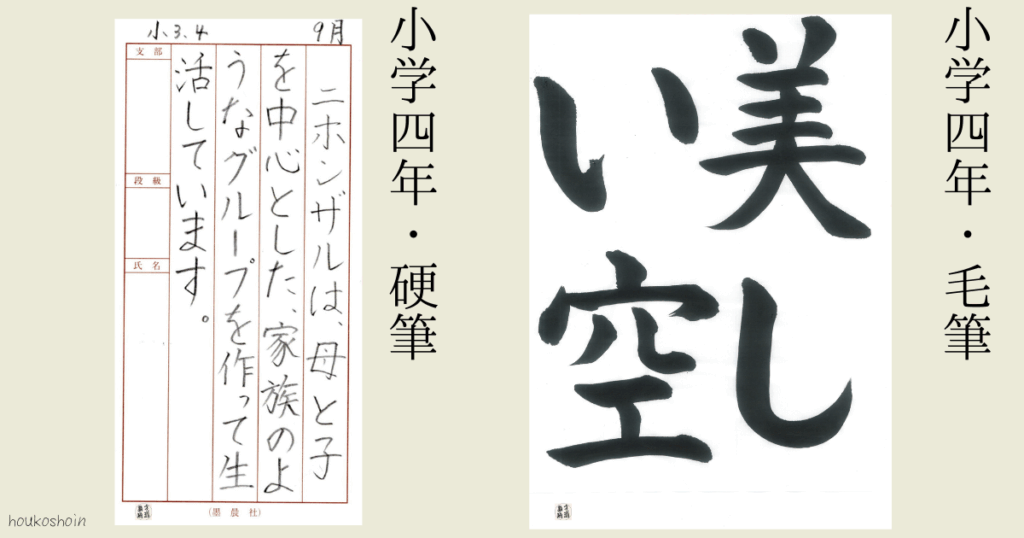 小学四年・毛筆
美し
い空
小学四年・硬筆
小3.4
9月
ニホンザルは、母と子
を中心とした、家族のよ
うなグループを作って生
活しています。
支部
段級
氏名
(墨晨社)
houkoshoin